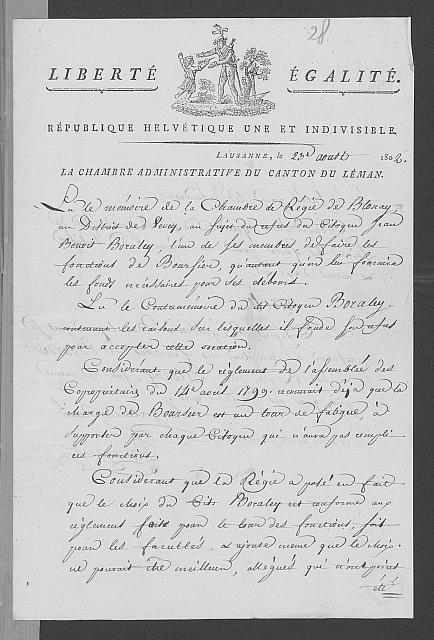 28.
LIBERTÉ ÉGALITÉ.
RÉPUBLIQUE HELVÉTIQUE UNE ET INDIVISIBLE.
LAUSANNE, le 23e aoust 1802.
LA CHAMBRE ADMINISTRATIVE DU CANTON DU LÉMAN.
Vu le mémoire de la Chambre de Régie de Blonay,
au District de Vevey, au sujet du refus du Citoyen Jean
Benoit Boraley, l'un de ses membres, de faire les
fonctions de Boursier, qu'autant qu'on lui fournira
les fonds nécéssaires pour ses débours.
Vu le Contremémoire du dit Citoyen Boraley,
contenant les raisons sur lesquelles il fonde son refus
pour accepter cette vocation.
Considérant que le règlement de l'assemblée des
Copropriétaires du 14e aout 1799. reconnait déjà que la
charge de Boursier est un tour de fatigue, à
supporter par chaque Citoyen qui n'aura pas rempli
ces fonctions.
Considérant que la Régie a posé en fait
que le choix du Cit. Boraley est conforme aux
règlement faits pour le tour des fonctions, soit
pour les facultés, & ajoute meme que le choix
ne pouvait être meilleur, allégués qui n'ont point
été